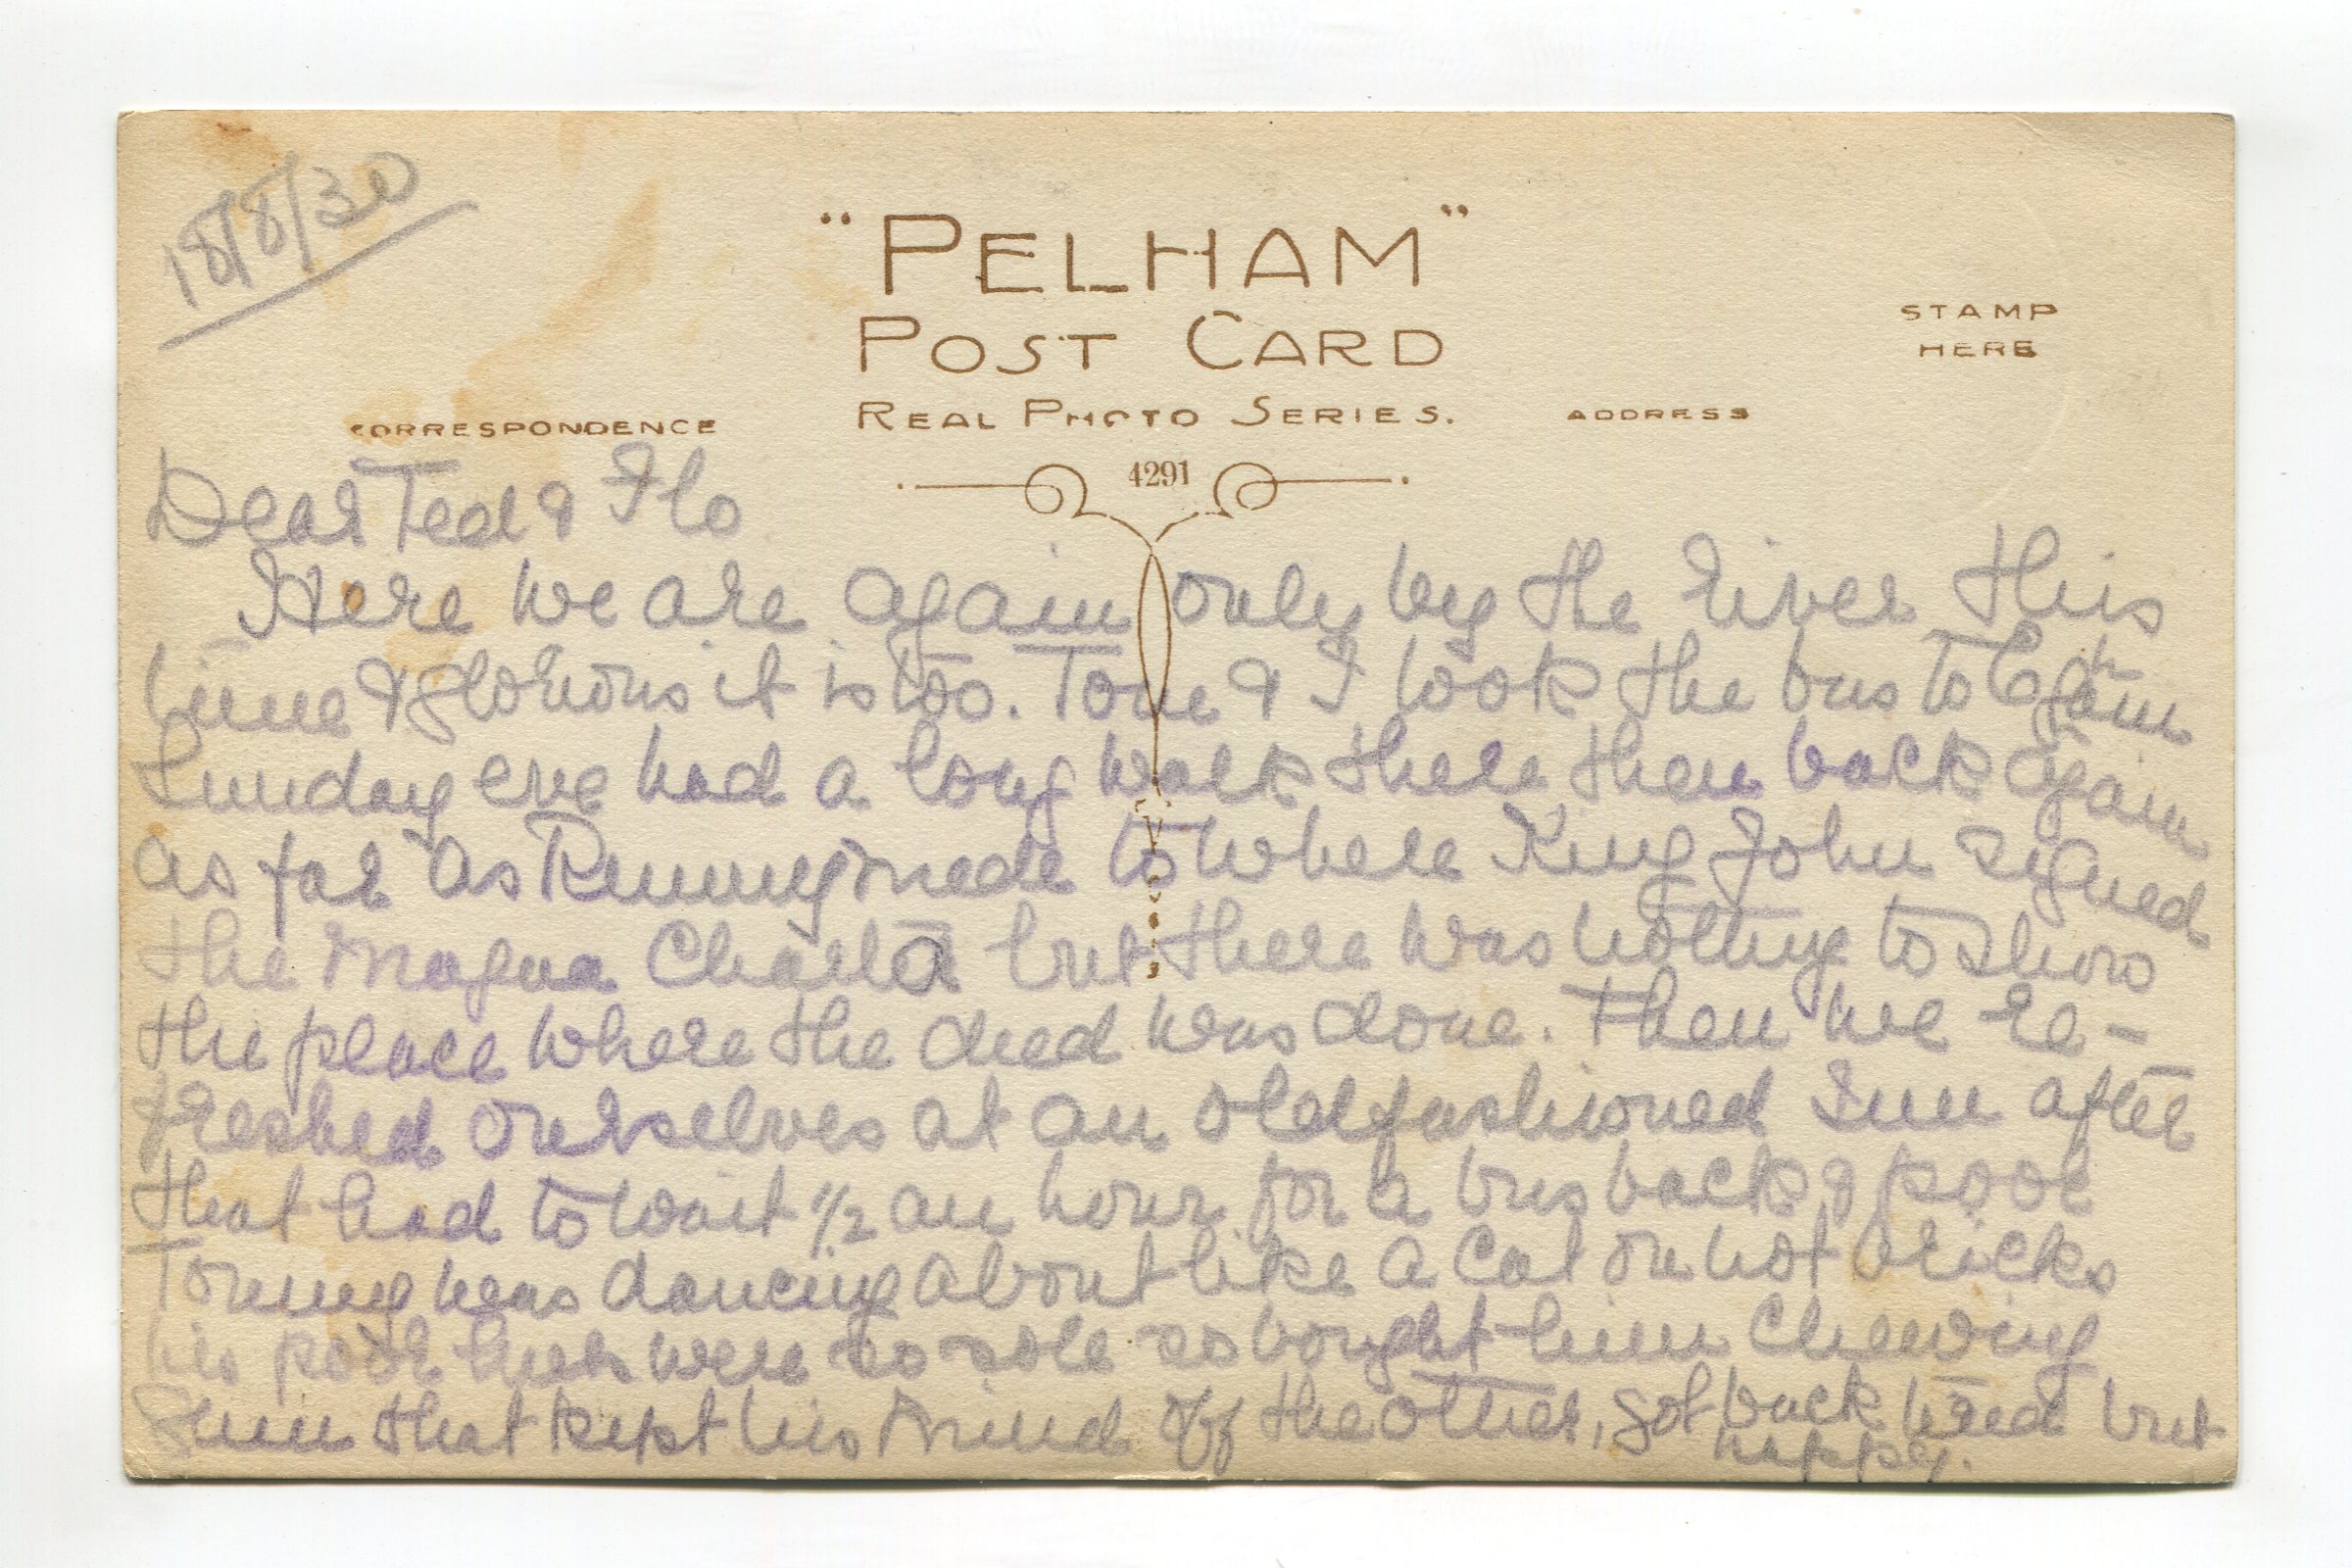 18/8/30
"PELHAM"
POST CARD
REAL PHOTO SERIES.
STAMP
HERE
CORRESPONDENCE
ADDRESS
4291
Dear Ted & Flo
Here we are again only by the river this
time & glorious it is too. Tom & I took the bus to Egham
Sunday eve had a long walk there then back again
as far as Runnymede to where King John signed
the Magna Charta but there was nothing to show
the place where the deed was done. Then we re-
freshed ourselves at an oldfashioned Inn after
that had to wait 1/2 an hour for a bus back & poor
Tommy was dancing about like a cat on hot bricks
his poor heels were so sore so bought him chewing
Gum that kept his mind off the other, got back tired but
happy.